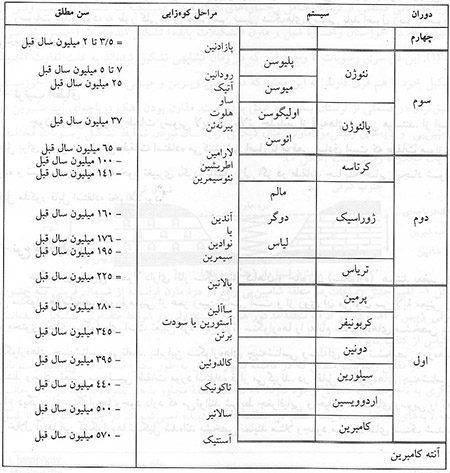 دوران سیستم مراحل کوه‌زایی سن مطلق
چهارم
پازادنین = ۳/۵ تا ۲ میلیون سال قبل
سوم نئوژن پلیوسن
رودانین ۷ تا ۵ میلیون سال قبل
میوسن آتیک ۲۵ میلیون سال قبل
ساو
پالئوژن اولیگوسن هلوت
پیرنه‌ئن ۳۷ میلیون سال قبل
ائوسن
لارامین = ۶۵ میلیون سال قبل
دوم کرتاسه اطریشین – ۱۰۰ میلیون سال قبل
نئوسیمرین – ۱۴۱ میلیون سال قبل
ژوراسیک مالم
دوگر آندین – ۱۶۰ میلیون سال قبل
یا
لیاس نوادین – ۱۷۶ میلیون سال قبل
سیمرین – ۱۹۵ میلیون سال قبل
تریاس
پالاتین = ۲۲۵ میلیون سال قبل
اول پرمین
ساآلین – ۲۸۰ میلیون سال قبل
کربونیفر آستورین یا سودت
برتن – ۳۴۵ میلیون سال قبل
دونین
کالدوئین – ۳۹۵ میلیون سال قبل
سیلورین
تاکونیک – ۴۴۰ میلیون سال قبل
اردوویسین
سالائیر – ۵۰۰ میلیون سال قبل
کامبرین
آسنتیک – ۵۷۰ میلیون سال قبل
آنته کامبرین